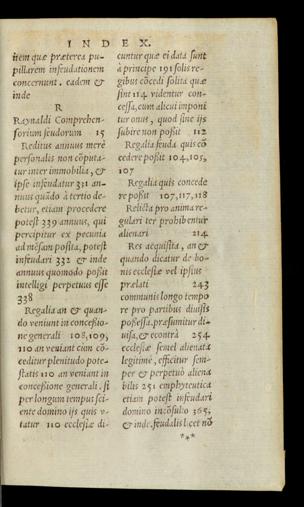 INDEX.
item quæ præterea pu-
pillarem infeudationem
concernunt. eadem &
inde
R
Raynaldi Comprehen-
sorium feudorum 15
Reditus annuus merè
personalis non cōputa-
tur inter immobilia, &
ipse infeudatur 331 an-
nuus quādo à tertio de-
betur, etiam procedere
potest 339 annuus, qui
percipitur ex pecunia
ad mēsam posita, potest
infeudari 332 & inde
annuus quomodo possit
intelligi perpetuus esse
338
Regalia an & quan-
do veniunt in concessio-
ne generali 108,109,
110 an veniant cum cō-
ceditur plenitudo pote-
statis 110 an veniant in
concessione generali. si
per longum tempus sci-
ente domino ijs quis v-
tatur 110 ecclesiæ di-
cuntur quæ ei data sunt
à principe 191 solis re-
gibus cōcedi solita quæ
sint 114 videntur con-
cessa, cum alicui imponi
tur onus, quod sine ijs
subire non possit 112
Regalia feuda quis cō
cedere possit 104,105,
107
Regalia quis concede
re possit 107,117,118
Relicta pro anima re-
gulari ter prohibentur
alienari 214
Res acquisita, an &
quando dicatur de bo-
nis ecclesiæ vel ipsius
prælati 243
communis longo tempo
re pro partibus diuisis
possessa, præsumitur di-
uisa, & econtrà 254
ecclesiæ semel alienata
legitimè, efficitur sem-
per & perpetuò aliena
bilis 251 emphyteutica
etiam potest infeudari
domino incōsulto 365,
& inde. feudalis licet nō
***